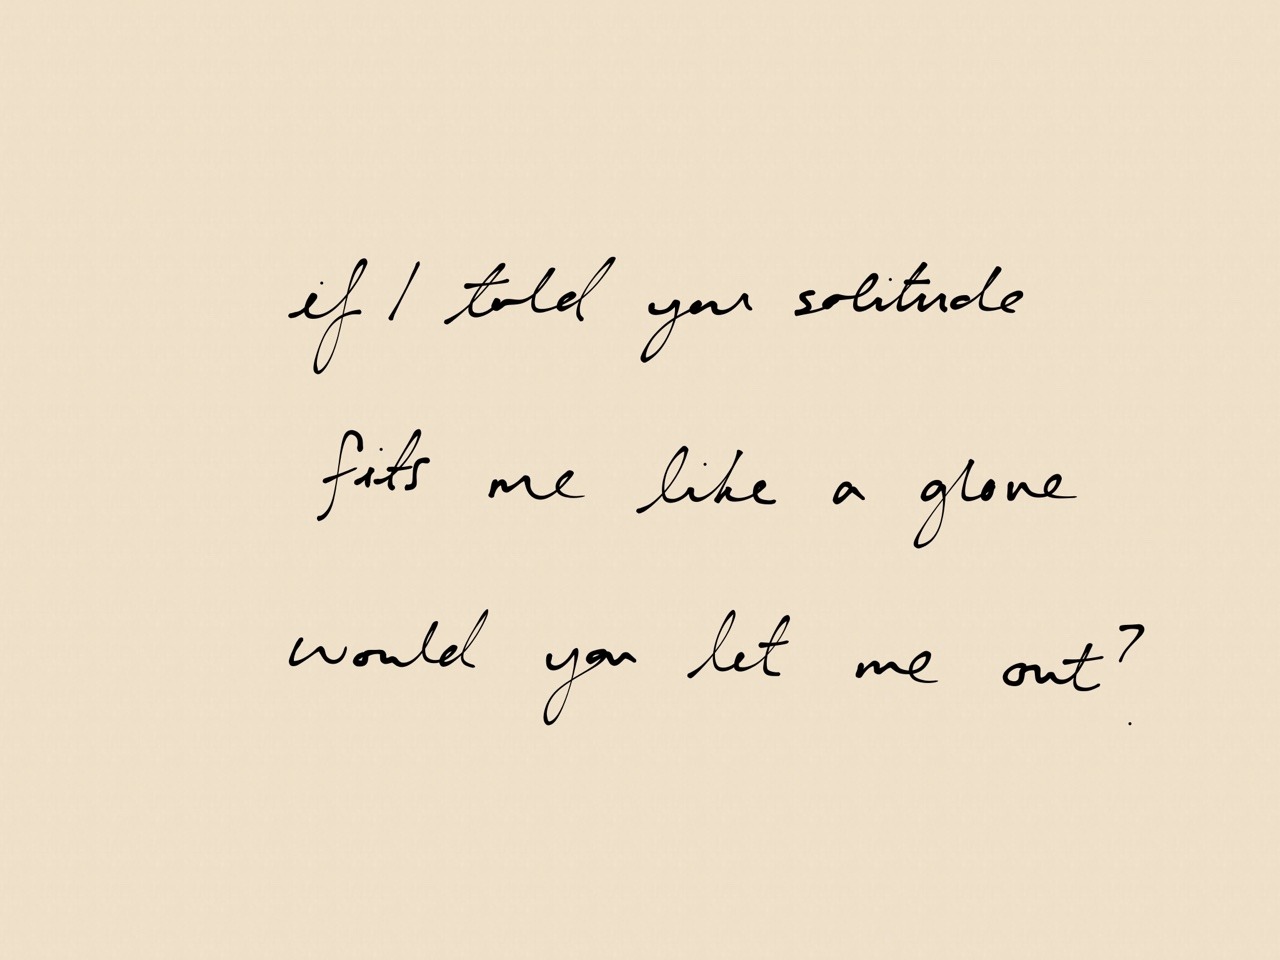 if I told you solitude
fits me like a glove
would you let me out?